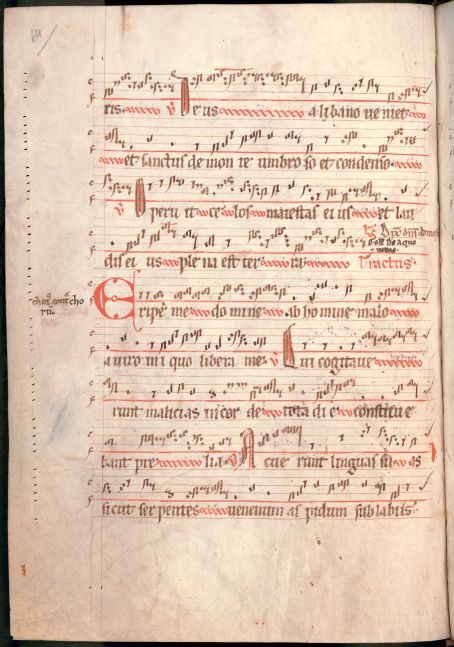 ris ℣ Deus a libano veniet
et sanctus de monte umbroso et condenso
℣ Aperuit celos maiestas eius et lau
dis eius plena est terra Tractus
Eripe me domine ab homine malo
a viro iniquo libera me ℣ Qui cogitave
runt malicias in corde tota die constitue
bant prelia ℣ Acuerunt linguas suas
sicut serpentes venenum aspidum sub labiis